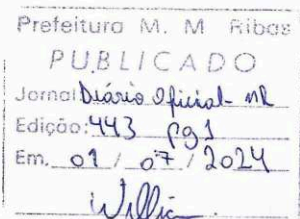 Prefeitura M. M Ribas
PUBLICADO
Jornal Diário Oficial - MR
Edição: 443 pg 1
Em. 01 / 07 / 2024